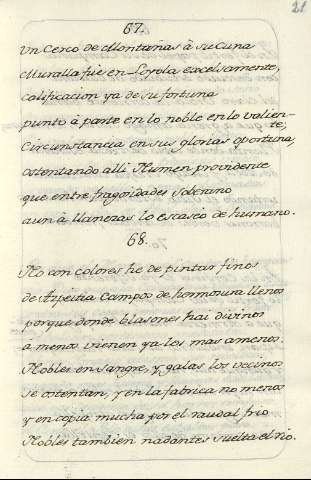 21
67.
Un Cerco de Montañas à su Cuna
Muralla fue en Loyola excelsamente,
calificacion ya de su fortuna
punto à parte en lo noble en lo valien-
te;
Circunstancia en sus glorias oportuna,
ostentando alli Numen providente
que entre fragosidades soberano
aun à llanezas lo escaseò de humano.
68.
No con colores he de pintar finos
de Azpeitia Campos de hermosura llenos
porque donde blasones hai divinos
à menos vienen ya los mas amenos.
Nobles en sangre, y galas los vecinos
se ostentan, y en la fabrica no menos
y en copia mucha por el raudal frio
Nobles tambien nadantes suelta el rio.